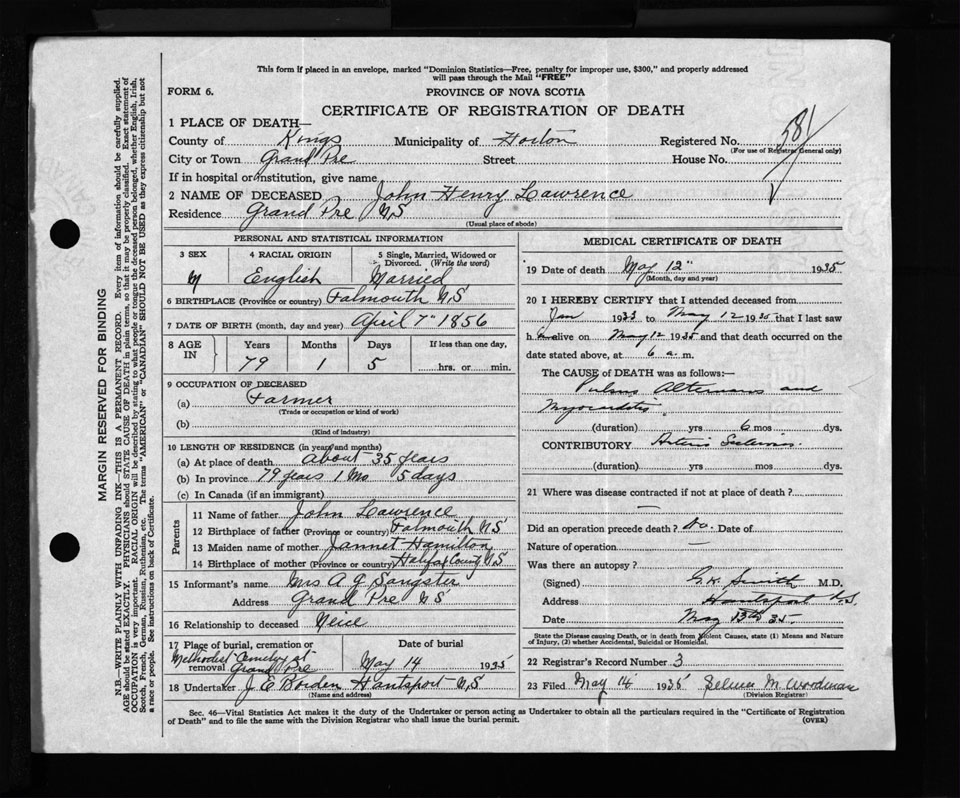 This form if placed in an envelope, marked "Dominion Statistics—Free, penalty for improper use, $300," and properly addressed
will pass through the Mail "FREE"
FORM 6. PROVINCE OF NOVA SCOTIA
CERTIFICATE OF REGISTRATION OF DEATH
1 PLACE OF DEATH—
County of Kings Municipality of Horton Registered No. 581
(For use of Registrar General only)
City or Town Grand Pre Street House No.
If in hospital or institution, give name
2 NAME OF DECEASED John Henry Lawrence
Residence Grand Pre NS
(Usual place of abode)
PERSONAL AND STATISTICAL INFORMATION
3 SEX 4 RACIAL ORIGIN 5 Single, Married, Widowed or
Divorced. (Write the word)
M English Married
6 BIRTHPLACE (Province or country) Falmouth N,S
7 DATE OF BIRTH (month, day and year) April 7" 1856
8 AGE IN Years Months Days If less than one day,
79 1 5 hrs. or min.
9 OCCUPATION OF DECEASED
(a) Farmer
(Trade or occupation or kind of work)
(b)
(Kind of industry)
10 LENGTH OF RESIDENCE (in years and months)
(a) At place of death about 35 years
(b) In province 79 years 1 Mo 5 days
(c) In Canada (if an immigrant)
Parents
11 Name of father John Lawrence
12 Birthplace of father (Province or country) Falmouth NS
13 Maiden name of mother Jannet Hamilton
14 Birthplace of mother (Province or country) Halifax County NS
15 Informant's name Mrs A J Sangster
Address Grand Pre NS
16 Relationship to deceased Neice
17 Place of burial, cremation or removal Date of burial
Methodist Cemetery at
Grand Pre May 14 1935
18 Undertaker J E Borden Hantsport NS
(Name and address)
MEDICAL CERTIFICATE OF DEATH
19 Date of death May 12" 1935
(Month, day and year)
20 I HEREBY CERTIFY that I attended deceased from
Jan 1933 to May 12 1935 that I last saw
h alive on May 12 1935 and that death occurred on the
date stated above, at 6 a.m.
The CAUSE of DEATH was as follows:—
Pulsus Alternans and
Myocarditis
(duration) yrs 6 mos. dys.
CONTRIBUTORY Arterio Sclerosis
(duration) yrs mos dys.
21 Where was disease contracted if not at place of death?
—
Did an operation precede death? No. Date of
Nature of operation —
Was there an autopsy?
(Signed) Smith M.D.
Address Hantsport N.S.
Date May 13th 35.
State the Disease causing Death, or in death from Violent Causes, state (1) Means and Nature
of Injury, (2) whether Accidental, Suicidal or Homicidal.
22 Registrar's Record Number 3
23 Filed May 14 1935 Selina M. Woodman
(Division Registrar)
Sec. 46—Vital Statistics Act makes it the duty of the Undertaker or person acting as Undertaker to obtain all the particulars required in the "Certificate of Registration
of Death" and to file the same with the Division Registrar who shall issue the burial permit. (OVER)
MARGIN RESERVED FOR BINDING
N.B.—WRITE PLAINLY WITH UNFADING INK—THIS IS A PERMANENT RECORD. Every item of information should be carefully supplied.
AGE should be stated EXACTLY. PHYSICIANS should STATE CAUSE OF DEATH in plain terms, so that it may be properly classified. Exact statement of
OCCUPATION is very important. RACIAL ORIGIN will be described by stating to what people or tongue the deceased person belonged, whether English, Irish,
Scotch, French, German, Russian, Ruthenian, etc. The terms "AMERICAN" or "CANADIAN" SHOULD NOT BE USED as they express citizenship but not
a race or people. See instructions on back of Certificate.